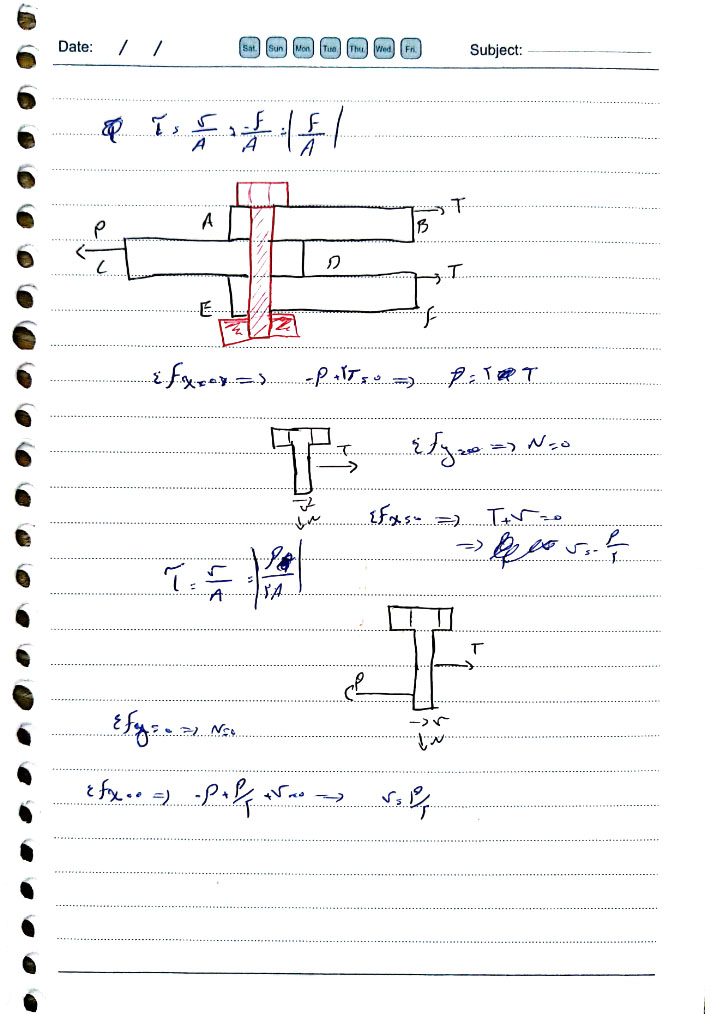 Date: / / Sat. Sun Mon Tue Thu. Wed Fri. Subject:
τ = V/A = -F/A = |F/A|
A B T
P C D T
E F
ΣFx=0 => -P+۲T=0 => P=۲T
T V N ΣFy=0 => N=0
ΣFx=0 => T+V=0
=> V=-P/۲
τ = V/A = |P/۲A|
P T V N
ΣFy=0 => N=0
ΣFx=0 => -P+P/۲+V=0 => V=P/۲